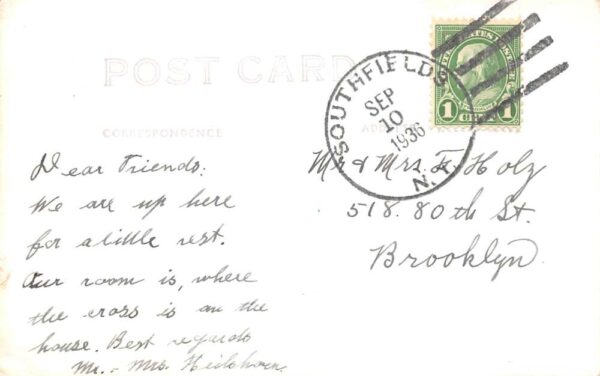 POST CARD
CORRESPONDENCE
SOUTHFIELDS
SEP
10
1936
N.Y.
UNITED STATES POSTAGE
1 CENT 1
Dear Friends:
We are up here
for a little rest.
Our room is, where
the cross is on the
house. Best regards
Mr. - Mrs.
Mr & Mrs F. Holz
518. 80th St.
Brooklyn.